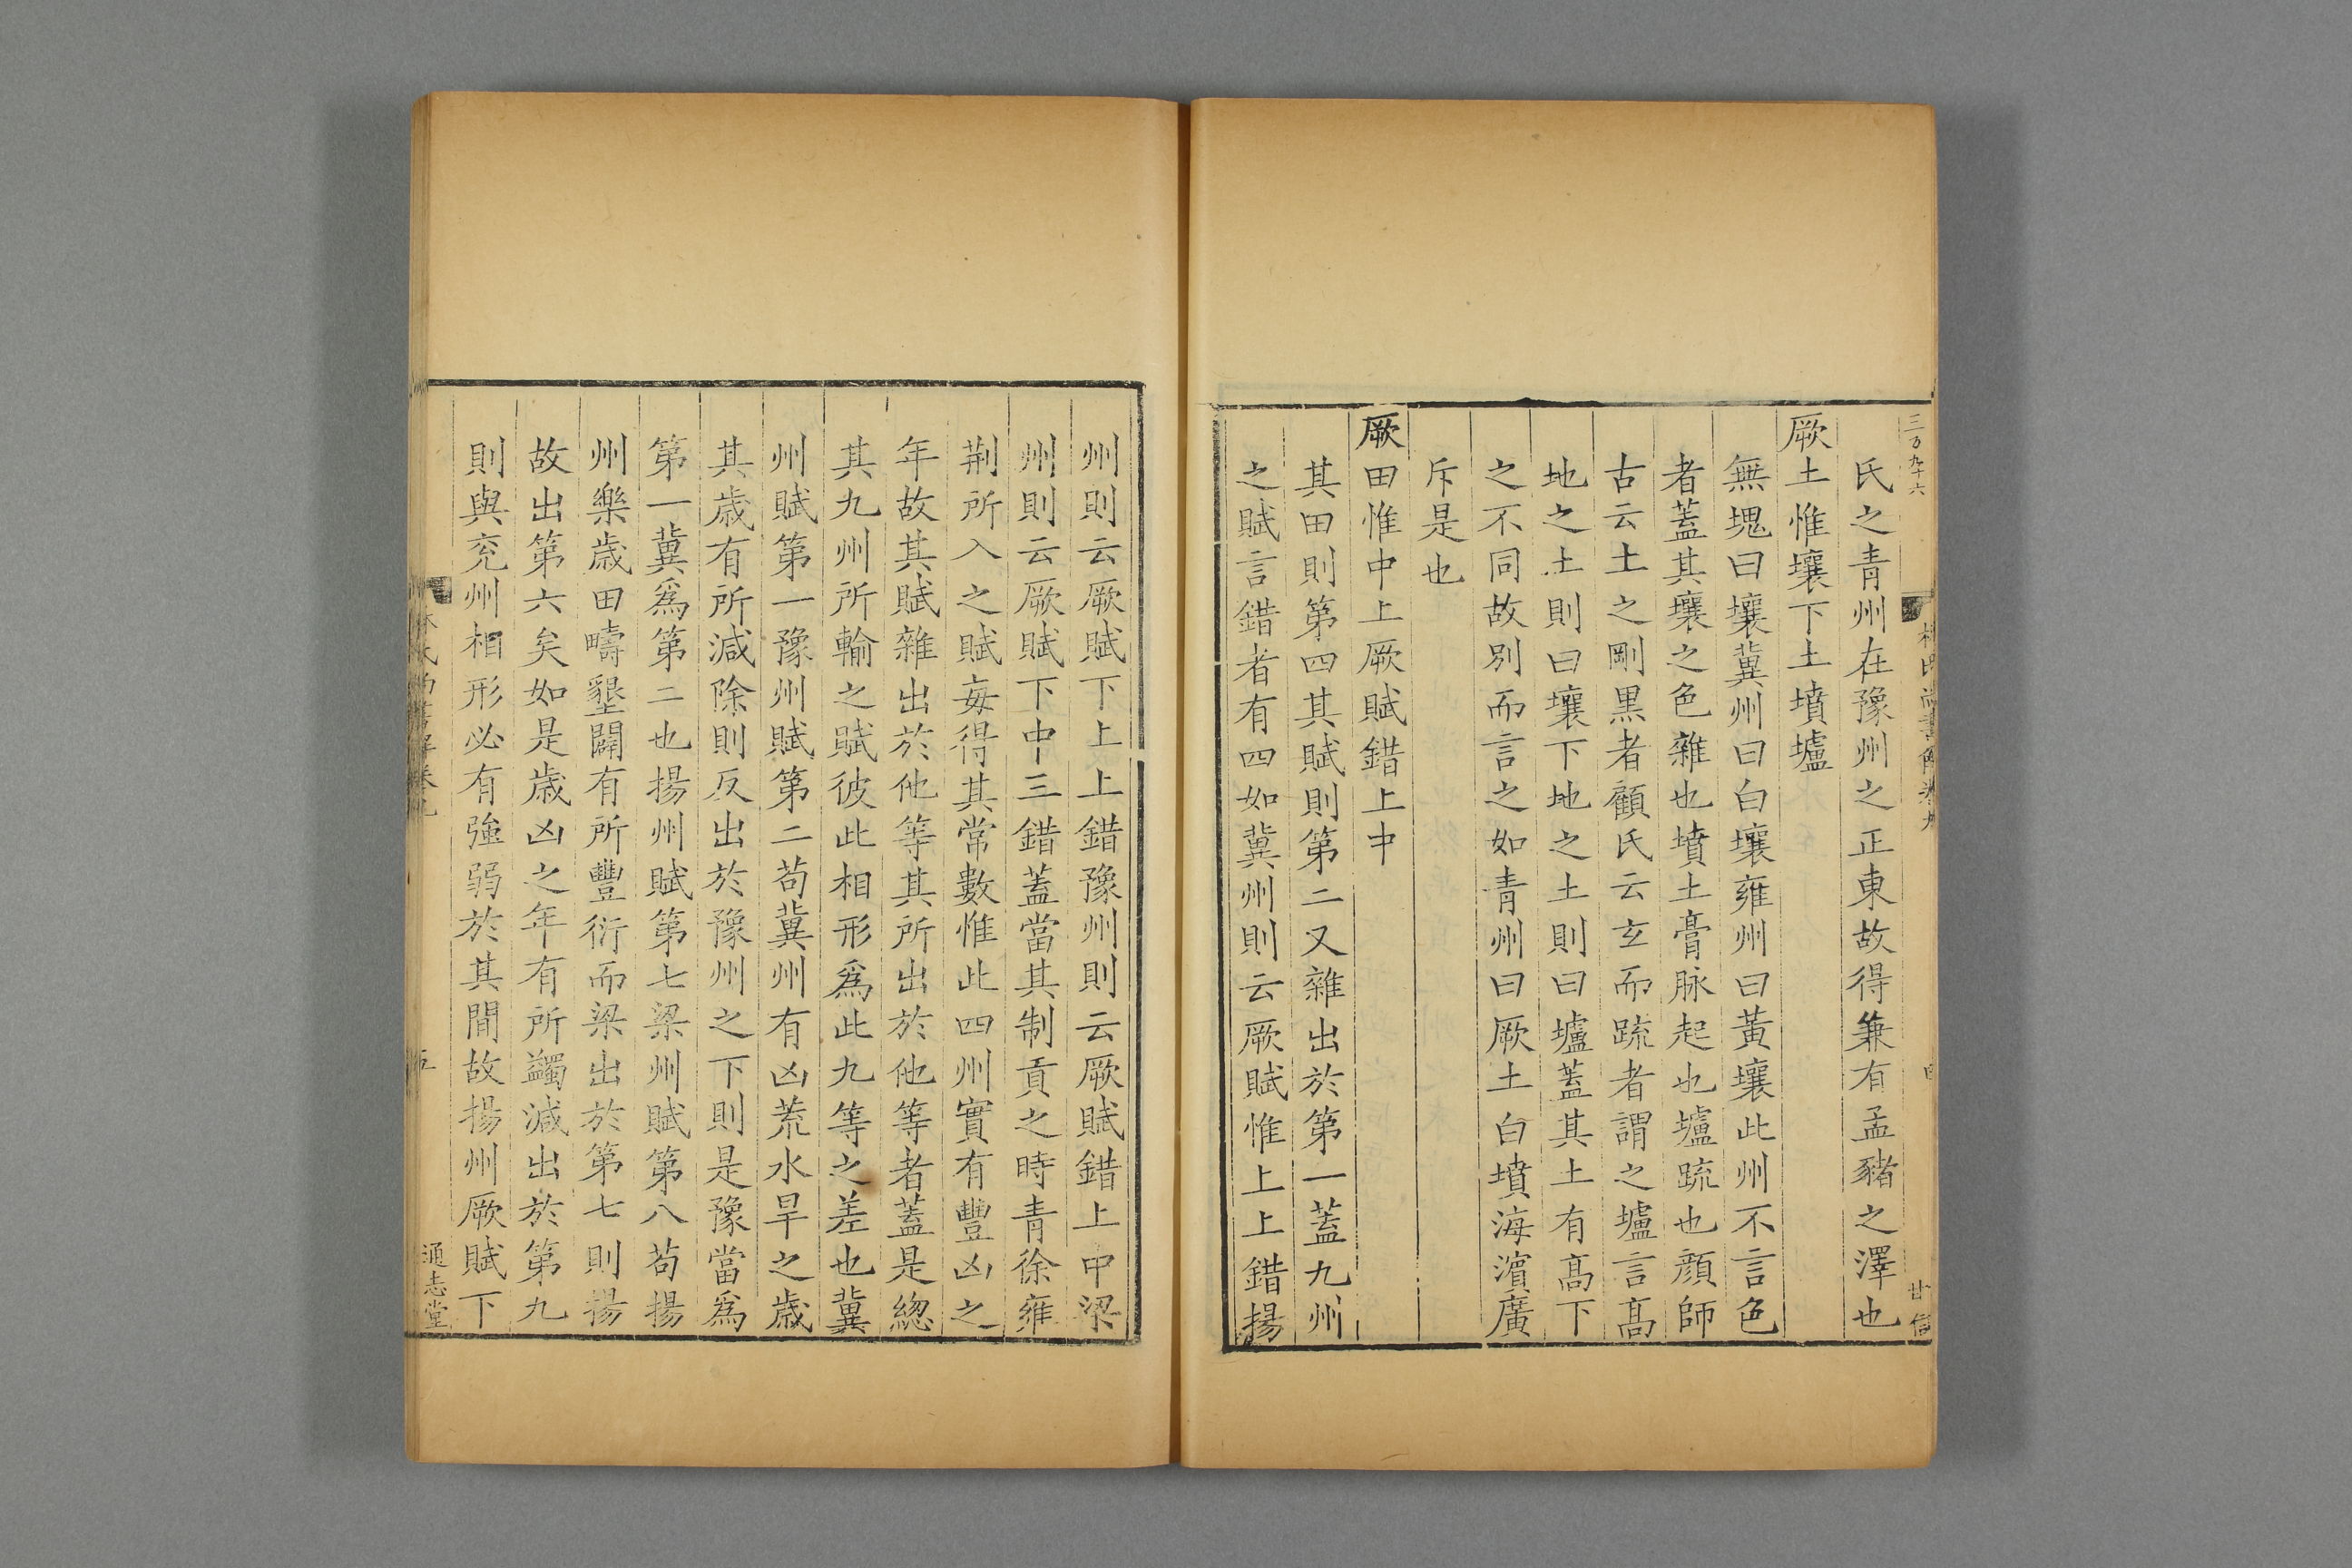 三百九十六
氏之青州在豫州之正東故得兼有孟豬之澤也
厥土惟壤下土墳壚
無塊曰壤冀州曰白壤雍州曰黃壤此州不言色
者蓋其壤之色雜也墳土膏脉起也壚䟽也顔師
古云土之剛黑者顧氏云玄而䟽者謂之壚言髙
地之土則曰壤下地之土則曰壚蓋其土有髙下
之不同故別而言之如青州曰厥土白墳海濵廣
斥是也
厥田惟中上厥賦錯上中
其田則第四其賦則第二又雜出於第一蓋九州
之賦言錯者有四如冀州則云厥賦惟上上錯揚
州則云厥賦下上上錯豫州則云厥賦錯上中梁
州則云厥賦下中三錯蓋當其制貢之時青徐雍
荆所入之賦毎得其常數惟此四州實有豐凶之
年故其賦雜出於他等其所出於他等者蓋是緫
其九州所輸之賦彼此相形爲此九等之差也冀
州賦第一豫州賦第二苟冀州有凶荒水旱之歳
其歳有所減除則反出於豫州之下則是豫當爲
第一冀爲第二也揚州賦第七梁州賦第八苟揚
州樂歳田疇墾闢有所豐衍而梁出於第七則揚
故出第六矣如是歳凶之年有所蠲減出於第九
則與兖州相形必有強弱於其間故揚州厥賦下
通志堂